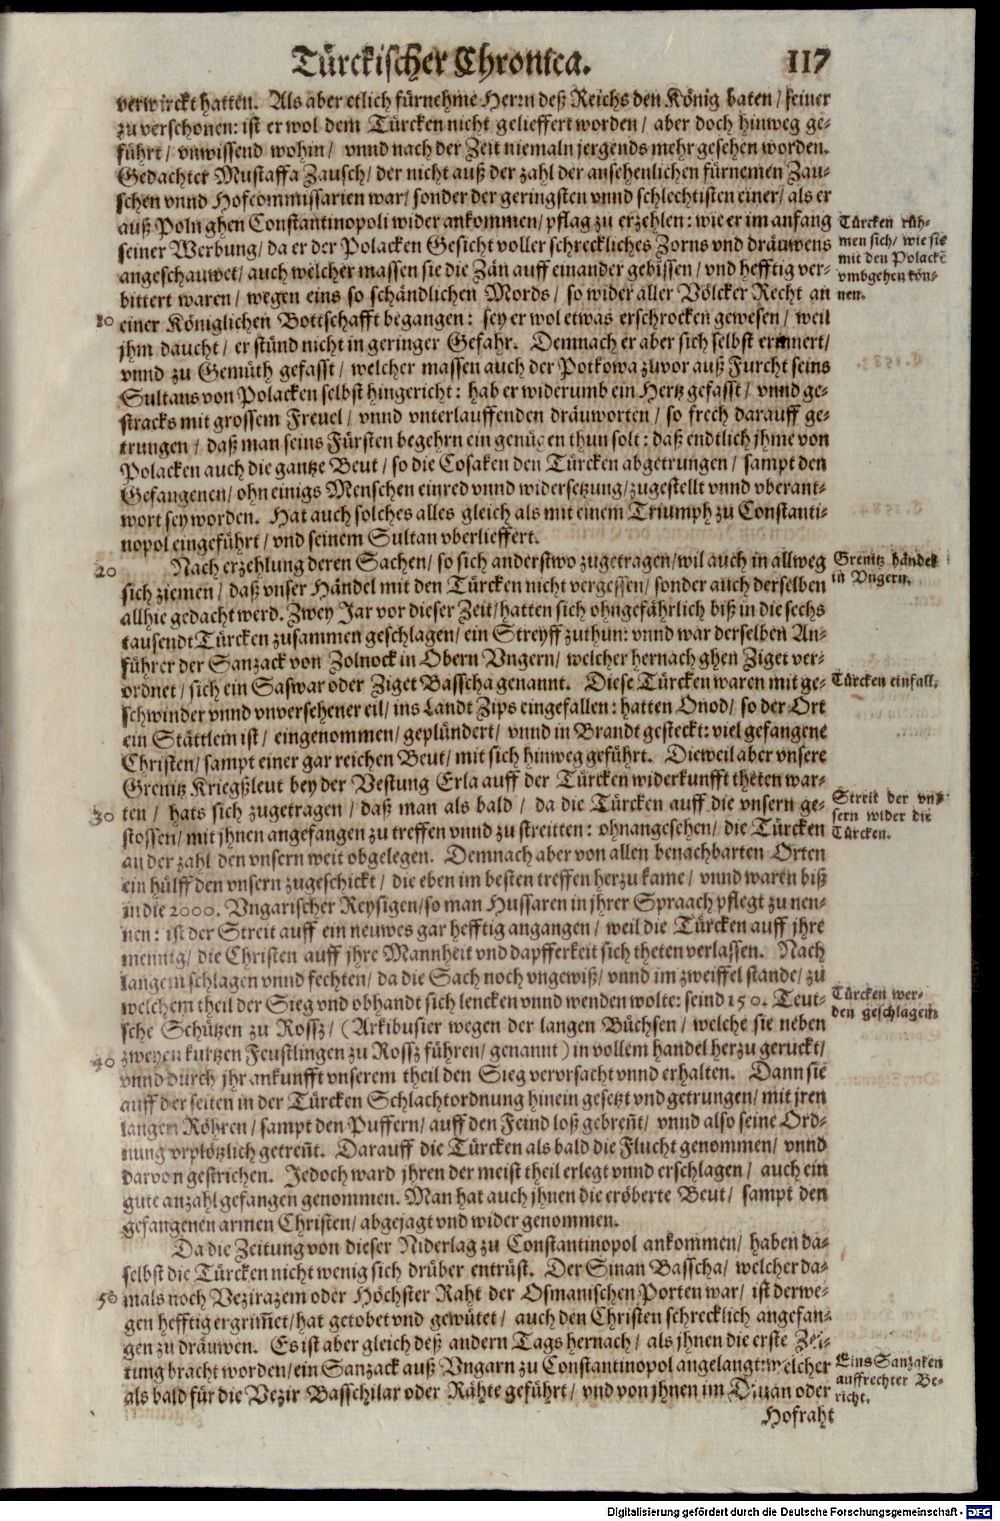 Türckischer Chronica. 117
verwirckt hatten. Als aber etlich fürnehme Herrn deß Reichs den König baten/ seiner
zu verschonen: ist er wol dem Türcken nicht gelieffert worden/ aber doch hinweg ge-
führt/ vnwissend wohin/ vnnd nach der Zeit niemaln jergends mehr gesehen worden.
Gedachter Mustaffa Zausch/ der nicht auß der zahl der ansehenlichen fürnemen Zau-
schen vnnd Hofcommissarien war/ sonder der geringsten vnnd schlechtisten einer/ als er
auß Poln ghen Constantinopoli wider ankommen/ pflag zu erzehlen: wie er im anfang
seiner Werbung/ da er der Polacken Gesicht voller schreckliches Zorns vnd dräuwens
angeschauwet/ auch welcher massen sie die Zän auff einander gebissen/ vnd hefftig ver-
bittert waren/ wegen eins so schändlichen Mords/ so wider aller Völcker Recht an
Türcken rüh-
men sich/ wie sie
mit den Polackē
vmbgehen kön-
nen.
10 einer Königlichen Bottschafft begangen: sey er wol etwas erschrocken gewesen/ weil
jhm daucht/ er stünd nicht in geringer Gefahr. Demnach er aber sich selbst erinnert/
vnnd zu Gemüth gefasst/ welcher massen auch der Potkowa zuvor auß Furcht seins
Sultans von Polacken selbst hingericht: hab er widerumb ein Hertz gefasst/ vnnd ge-
stracks mit grossem Freuel/ vnnd vnterlauffenden dräuworten/ so frech darauff ge-
trungen/ daß man seins Fürsten begehrn ein genügen thun solt: daß endtlich jhme von
Polacken auch die gantze Beut/ so die Cosaken den Türcken abgetrungen/ sampt den
Gefangenen/ ohn einigs Menschen einred vnnd widersetzung/ zugestellt vnnd vberant-
wort sey worden. Hat auch solches alles gleich als mit einem Triumph zu Constanti-
nopol eingeführt/ vnd seinem Sultan vberlieffert.
20 Nach erzehlung deren Sachen/ so sich anderstwo zugetragen/ wil auch in allweg
Grenitz händel
in Vngern.
sich ziemen/ daß vnser Händel mit den Türcken nicht vergessen/ sonder auch derselben
allhie gedacht werd. Zwey Jar vor dieser Zeit/ hatten sich ohngefährlich biß in die sechs
tausendt Türcken zusammen geschlagen/ ein Streyff zuthun: vnnd war derselben An-
führer der Sanzack von Zolnock in Obern Vngern/ welcher hernach ghen Ziget ver-
ordnet/ sich ein Saswar oder Ziget Basscha genannt. Diese Türcken waren mit ge-
Türcken einfall.
schwinder vnnd vnversehener eil/ ins Landt Zips eingefallen: hatten Onod/ so der Ort
ein Stättlein ist/ eingenommen/ geplündert/ vnnd in Brandt gesteckt: viel gefangene
Christen/ sampt einer gar reichen Beut/ mit sich hinweg geführt. Dieweil aber vnsere
Grenitz Kriegßleut bey der Vestung Erla auff der Türcken widerkunfft theten war-
30 ten/ hats sich zugetragen/ daß man als bald/ da die Türcken auff die vnsern ge-
Streit der vn-
sern wider die
Türcken.
stossen/ mit jhnen angefangen zu treffen vnnd zu streitten: ohnangesehen/ die Türcken
an der zahl den vnsern weit obgelegen. Demnach aber von allen benachbarten Orten
ein hülff den vnsern zugeschickt/ die eben im besten treffen herzu kame/ vnnd waren biß
in die 2000. Vngarischer Reysigen/ so man Hussaren in jhrer Spraach pflegt zu nen-
nen: ist der Streit auff ein neuwes gar hefftig angangen/ weil die Türcken auff jhre
mennig/ die Christen auff jhre Mannheit vnd dapfferkeit sich theten verlassen. Nach
langem schlagen vnnd fechten/ da die Sach noch vngewiß/ vnnd im zweiffel stande/ zu
welchem theil der Sieg vnd obhandt sich lencken vnnd wenden wolte: seind 150. Teut-
Türcken wer-
den geschlagen.
sche Schützen zu Rossz/ (Arkibusier wegen der langen Büchsen/ welche sie neben
40 zweyen kurtzen Feustlingen zu Rossz führen/ genannt) in vollem handel herzu geruckt/
vnnd durch jhr ankunfft vnserem theil den Sieg vervrsacht vnnd erhalten. Dann sie
auff der seiten in der Türcken Schlachtordnung hinein gesetzt vnd getrungen/ mit jren
langen Röhren/ sampt den Puffern/ auff den Feind loß gebreñt/ vnnd also seine Ord-
nung vrplötzlich getreñt. Darauff die Türcken als bald die Flucht genommen/ vnnd
darvon gestrichen. Jedoch ward jhren der meist theil erlegt vnnd erschlagen/ auch ein
gute anzahl gefangen genommen. Man hat auch jhnen die eröberte Beut/ sampt den
gefangenen armen Christen/ abgejagt vnd wider genommen.
Da die Zeitung von dieser Niderlag zu Constantinopol ankommen/ haben da-
selbst die Türcken nicht wenig sich drüber entrüst. Der Sinan Basscha/ welcher da-
50 mals noch Vezirazem oder Höchster Raht der Osmanischen Porten war/ ist derwe-
gen hefftig ergrim̄et/ hat getobet vnd gewütet/ auch den Christen schrecklich angefan-
gen zu dräuwen. Es ist aber gleich deß andern Tags hernach/ als jhnen die erste Zei-
tung bracht worden/ ein Sanzack auß Vngarn zu Constantinopol angelangt: welcher
Eins Sanzaken
auffrechter Be-
richt.
als bald für die Vezir Basschilar oder Rähte geführt/ vnd von jhnen im Diuan oder
Hofraht
Digitalisierung gefördert durch die Deutsche Forschungsgemeinschaft - DFG